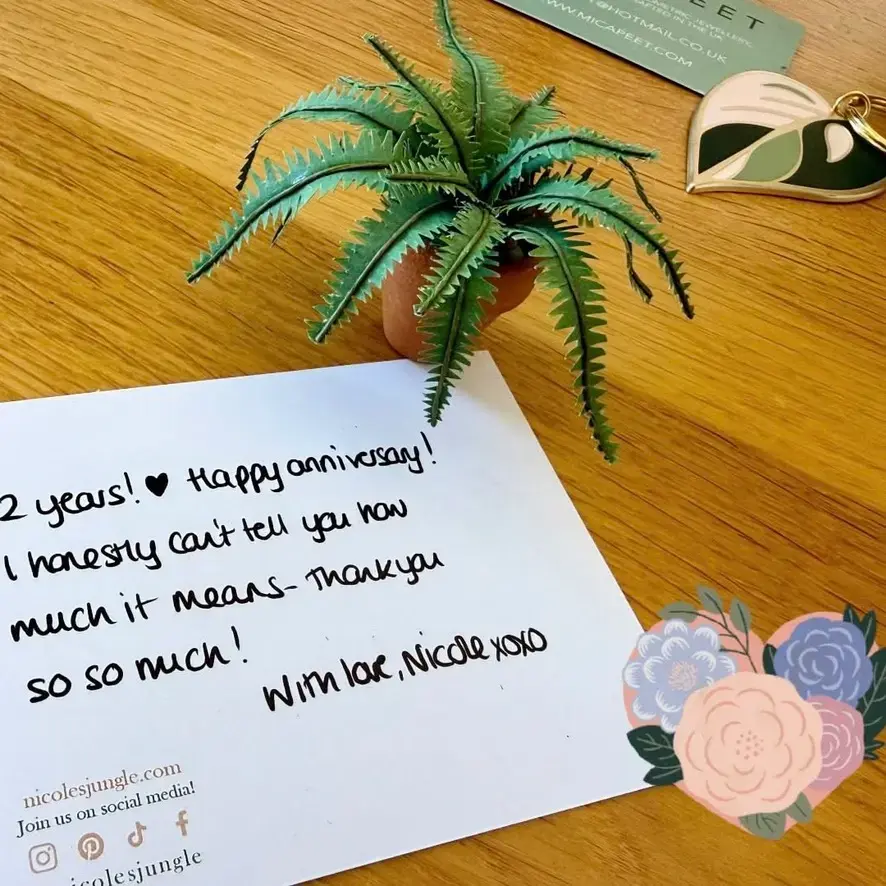 EET
METRIC JEWELLERY,
AFTED IN THE UK
@HOTMAIL.CO.UK
WWW.MICAFEET.COM
2 years! ♥ Happy anniversary!
I honestly can't tell you how
much it means- Thankyou
so so much!
With love, Nicole xoxo
nicolesjungle.com
Join us on social media!
icolesjungle